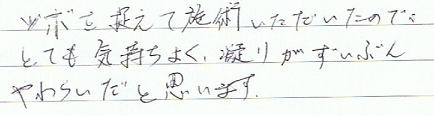 ツボを捉えて施術いただいたので
とても気持ちよく、凝りがずいぶん
やわらいだと思います。